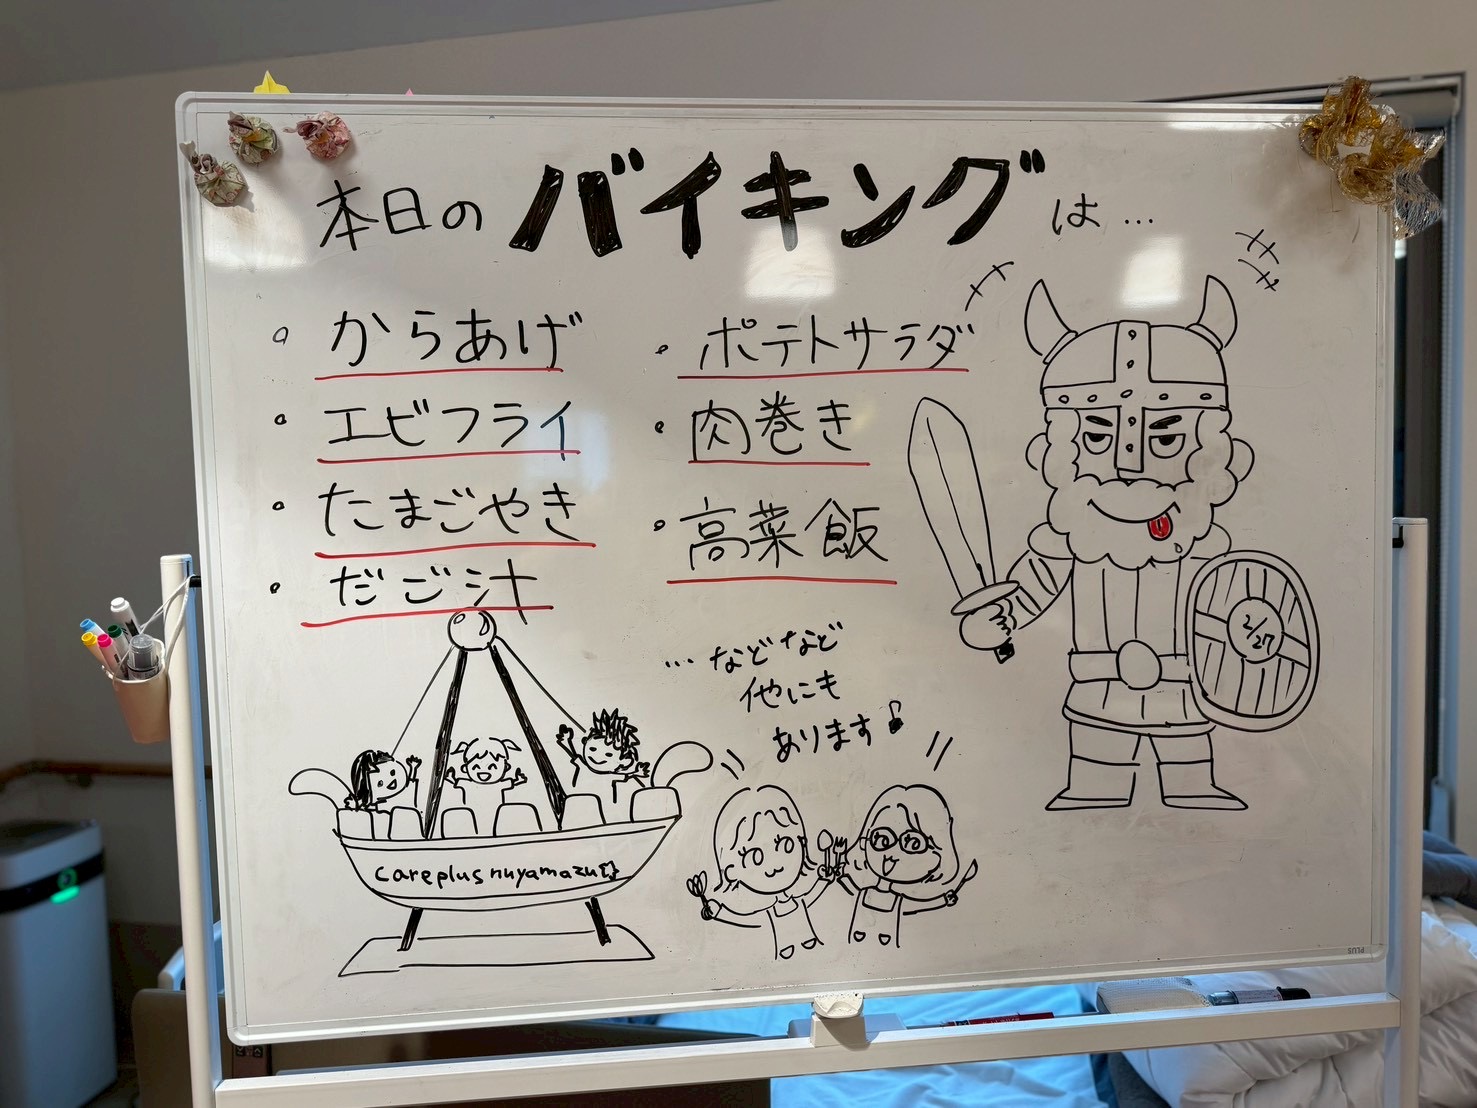 本日のバイキングは…
・からあげ
・エビフライ
・たまごやき
・だご汁
・ポテトサラダ
・肉巻き
・高菜飯
…などなど
他にも
あります♪
2/27
careplus nuyamazu
PLUS